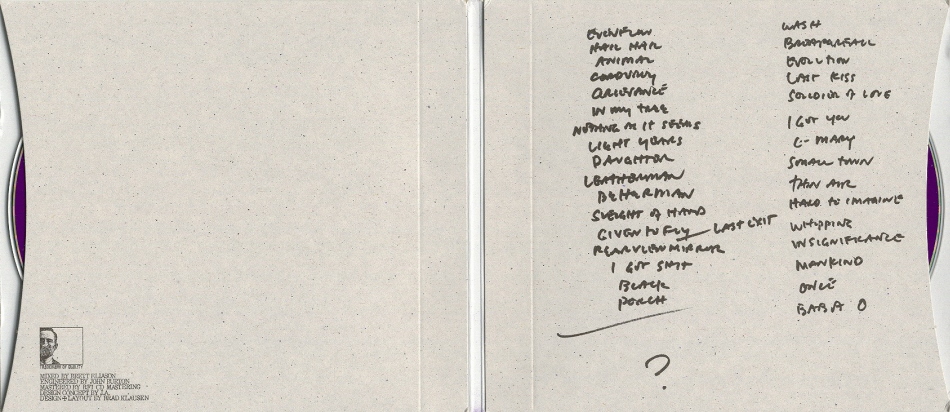 EVENFLOW
HAIL HAIL
ANIMAL
CORDUROY
GRIEVANCE
IN MY TREE
NOTHING AS IT SEEMS
LIGHT YEARS
DAUGHTER
LEATHERMAN
BETTERMAN
SLEIGHT OF HAND
GIVEN TO FLY
LAST EXIT
REARVIEWMIRROR
I GOT SHIT
BLACK
PORCH
?
WASH
BREAKERFALL
EVOLUTION
LAST KISS
SOLDIER OF LOVE
I GOT YOU
C- MARY
SMALL TOWN
THIN AIR
HARD TO IMAGINE
WHIPPING
INSIGNIFICANCE
MANKIND
ONCE
BABA O
TRADEMARK OF QUALITY
MIXED BY BRETT ELIASON
ENGINEERED BY JOHN BURTON
MASTERED BY RFI CD MASTERING
DESIGN CONCEPT BY J.A.
DESIGN + LAYOUT BY BRAD KLAUSEN